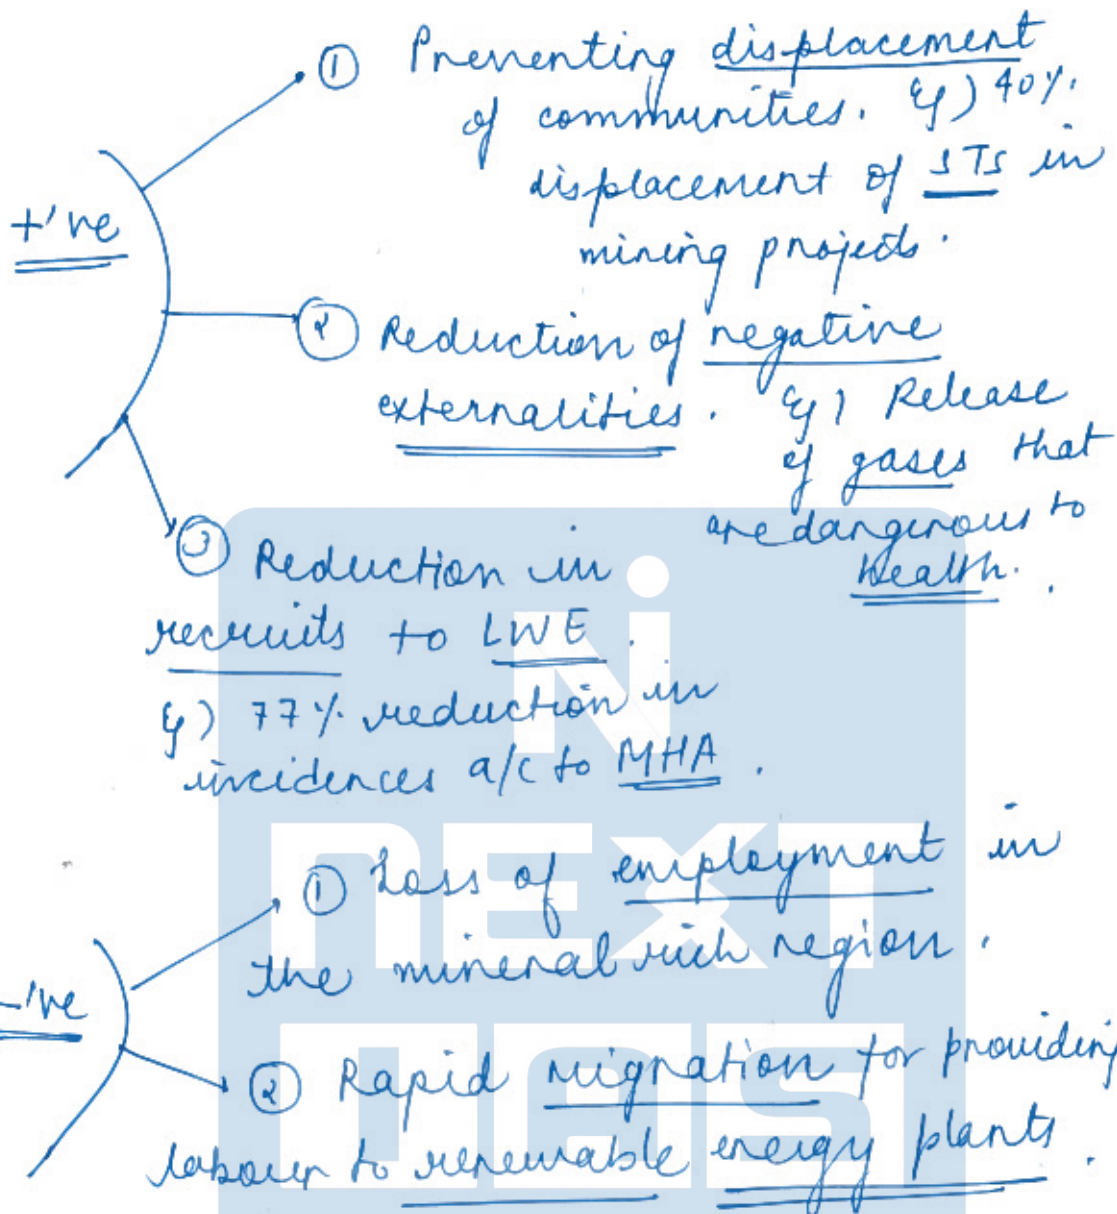 ① Preventing displacement
of communities. Eg) 40%.
displacement of STs in
mining projects.
+'ve
② Reduction of negative
externalities. Eg) Release
of gases that
are dangerous to
health.
③ Reduction in
recruits to LWE.
Eg) 77% reduction in
incidences a/c to MHA.
① Loss of employment in
the mineral rich region.
-'ve
② Rapid migration for providing
labour to renewable energy plants.
NEXT
IAS